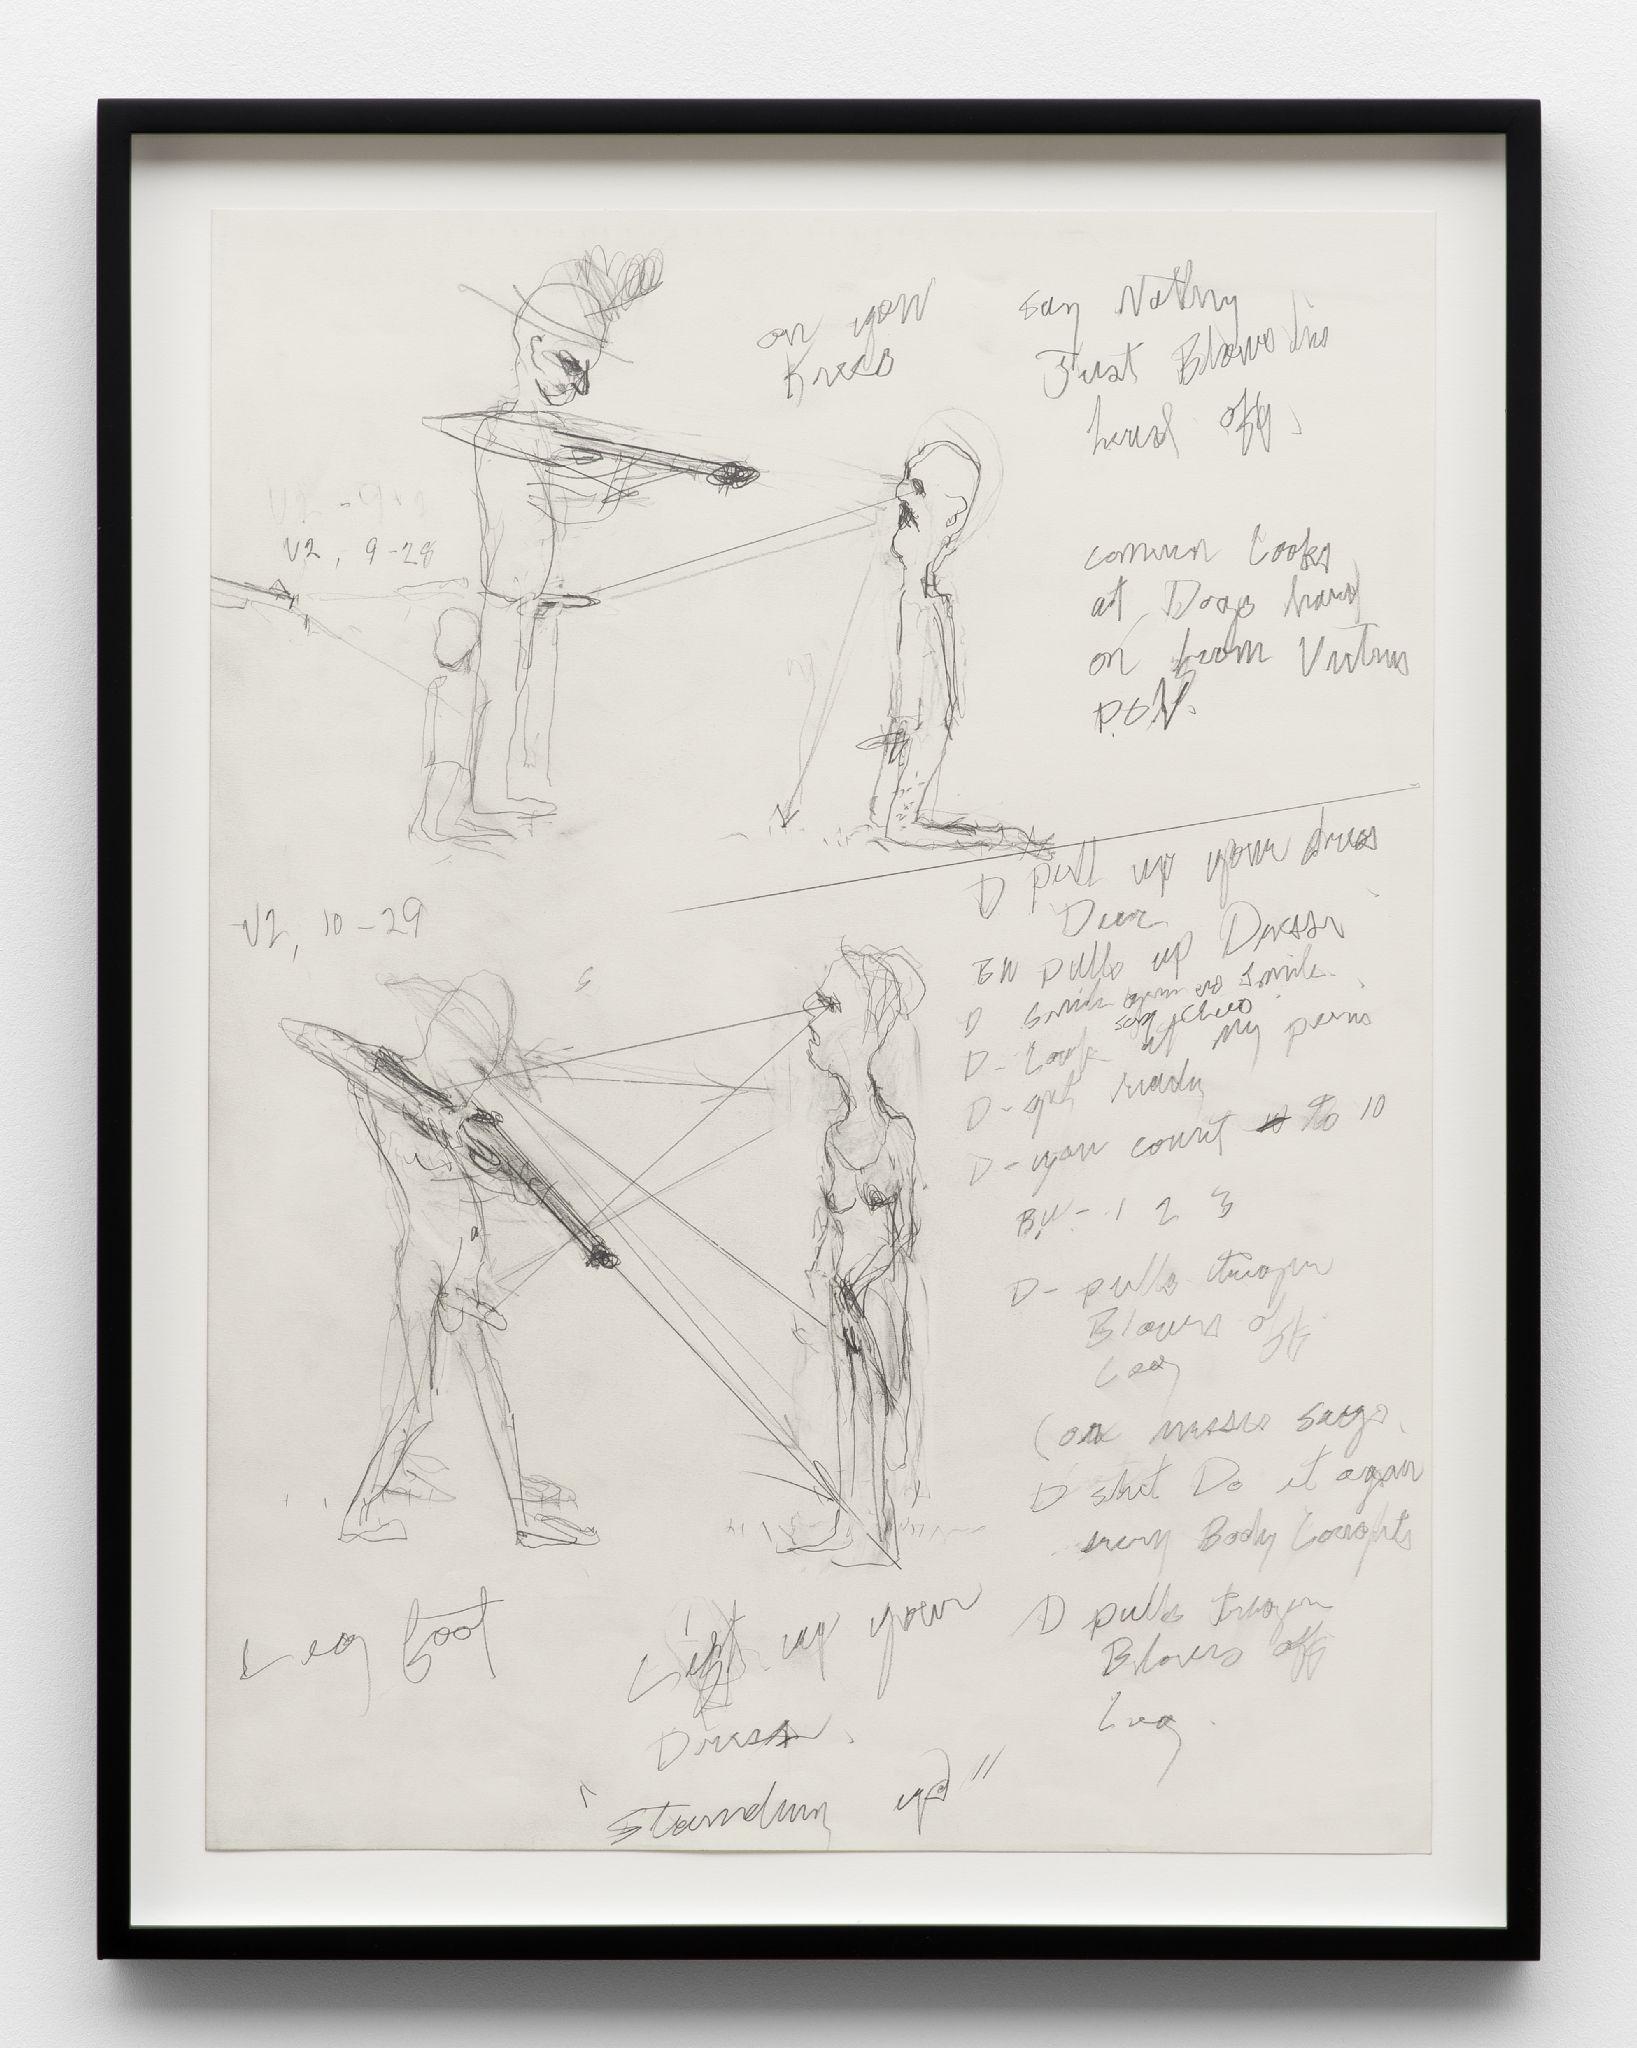 on your
Knees
say Nothing
Just Blows his
head off.
V2, 9-28
common Looks
at Dogs hard
on from Victims
P.O.V.
D pull up your dress
Dear
EW pulls up Dresss
D Smile smile.
say cheeo
D- Look at My penis
D- get ready
D- you count to 10
EW- 1 2 3
D- pulls trigger
Blowes off
Leg
V2, 10-29
5
(one misses
D shit Do it again
every Body Laughts
D pulls trigger
Blowes off
Leg.
Leg foot
Lift up your
Dresss.
"Standing up"